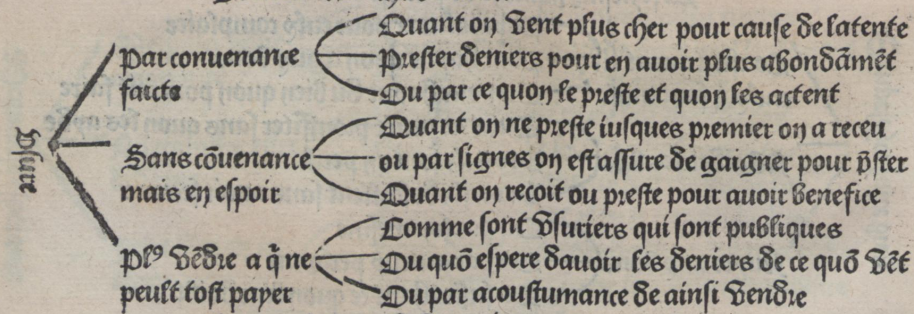 Usure
Par convenance
faicte
Quant on vent plus cher pour cause de latente
Prester deniers pour en avoir plus abondãmẽt
Ou par ce quon le preste et quon les actent
Sans cõvenance
mais en espoir
Quant on ne preste iusques premier on a receu
ou par signes on est assure de gaigner pour p̃ster
Quant on recoit ou preste pour avoir benefice
Plꝰ vẽdre a q̃ ne
peult tost payer
Comme sont usuriers qui sont publiques
Ou quõ espere davoir les deniers de ce quõ vẽt
Ou par acoustumance de ainsi vendre